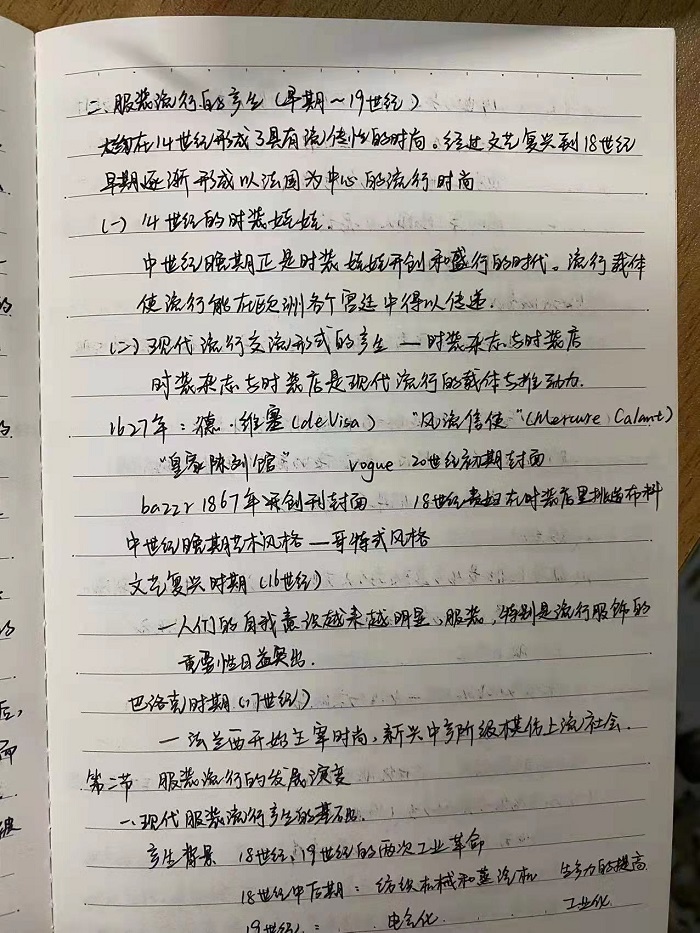 二、服装流行的产生（早期～19世纪）
大约在14世纪形成了具有流传性的时尚。经过文艺复兴到18世纪
早期逐渐形成以法国为中心的流行时尚
(一) 14世纪的时装娃娃.
中世纪晚期正是时装娃娃开创和盛行的时代。流行载体
使流行能在欧洲各个宫廷中得以传递.
(二) 现代流行交流形式的产生 — 时装杂志与时装店
时装杂志与时装店是现代流行的载体与推动力.
1627年：德·维塞 (deVisa) "风流信使"(Mercure Calant)
"皇家陈列馆" vogue 20世纪初期封面
bazzr 1867年开创刊封面 18世纪贵妇在时装店里挑选布料
中世纪晚期艺术风格 — 哥特式风格
文艺复兴时期 (16世纪)
— 人们的自我意识越来越明显、服装，特别是流行服饰的
重要性日益突出.
巴洛克时期 (17世纪)
— 法兰西开始主宰时尚、新兴中产阶级模仿上流社会.
第二节 服装流行的发展演变
一.现代服装流行产生的基础.
产生背景 18世纪、19世纪的两次工业革命
18世纪中后期：纺织机械和蒸汽机 生产力的提高
19世纪： 电气化 工业化
的
后,
面